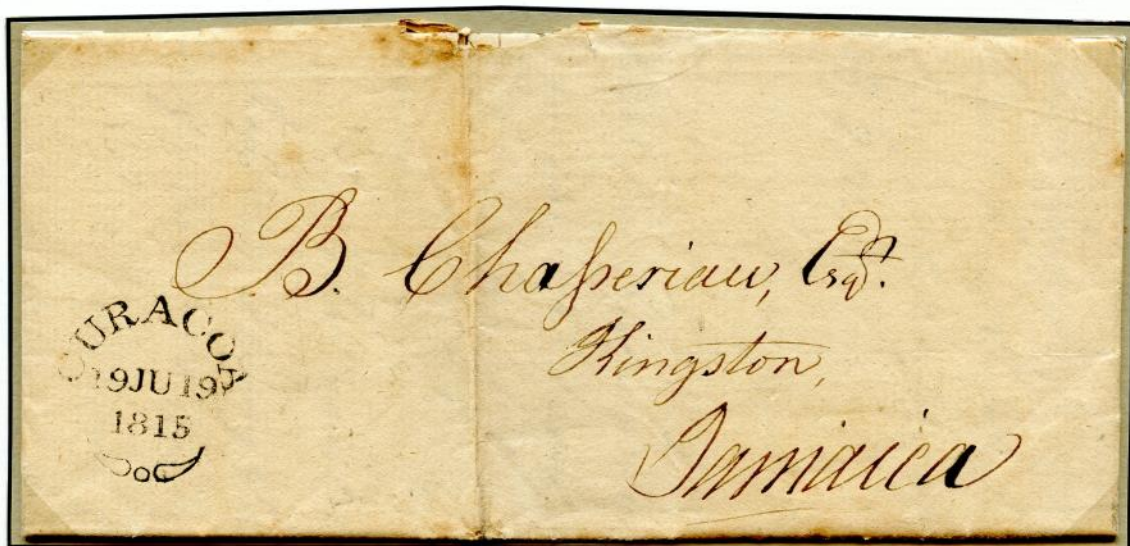 B. Chasseriau, Esqr.
Kingston,
Jamaica
CURACOA
19JU19
1815